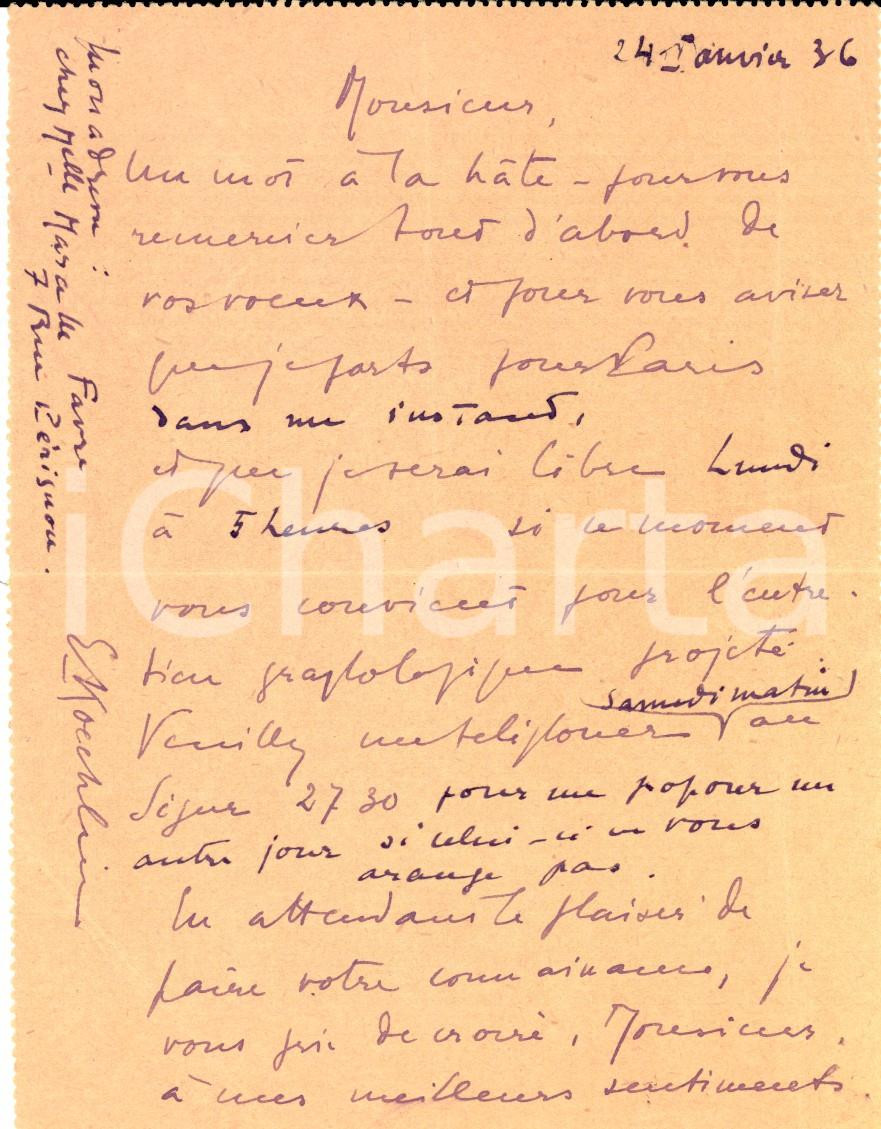 24 Janvier 36
Monsieur,
Un mot à la hâte - pour vous
remercier tout d'abord de
vos voeux - et pour vous aviser
que je parts pour Paris
dans un instant,
et que je serai libre Lundi
à 5 heures si ce moment
vous convient pour l'entre-
tien graphologique projeté.
Samedi matin
Veuillez me téléphoner au
Ségur 27 30 pour me proposer un
autre jour si celui-ci ne vous
arange pas.
En attendant le plaisir de
faire votre connaissance, je
vous prie de croire, Monsieur,
à mes meilleurs sentiments.
E Koechlin
Mon adresse :
chez Melle Favre
7 Rue Pérignon.
iCharta